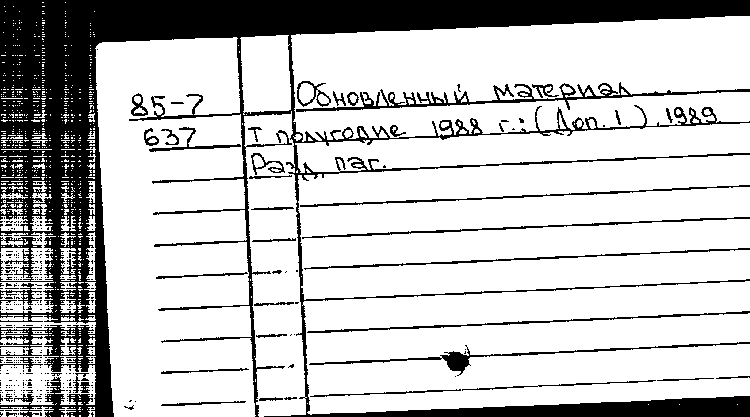 85-7 Обновленный материал...
637 I полугодие 1988 г.: (Доп. 1). 1989
Разд. паг.